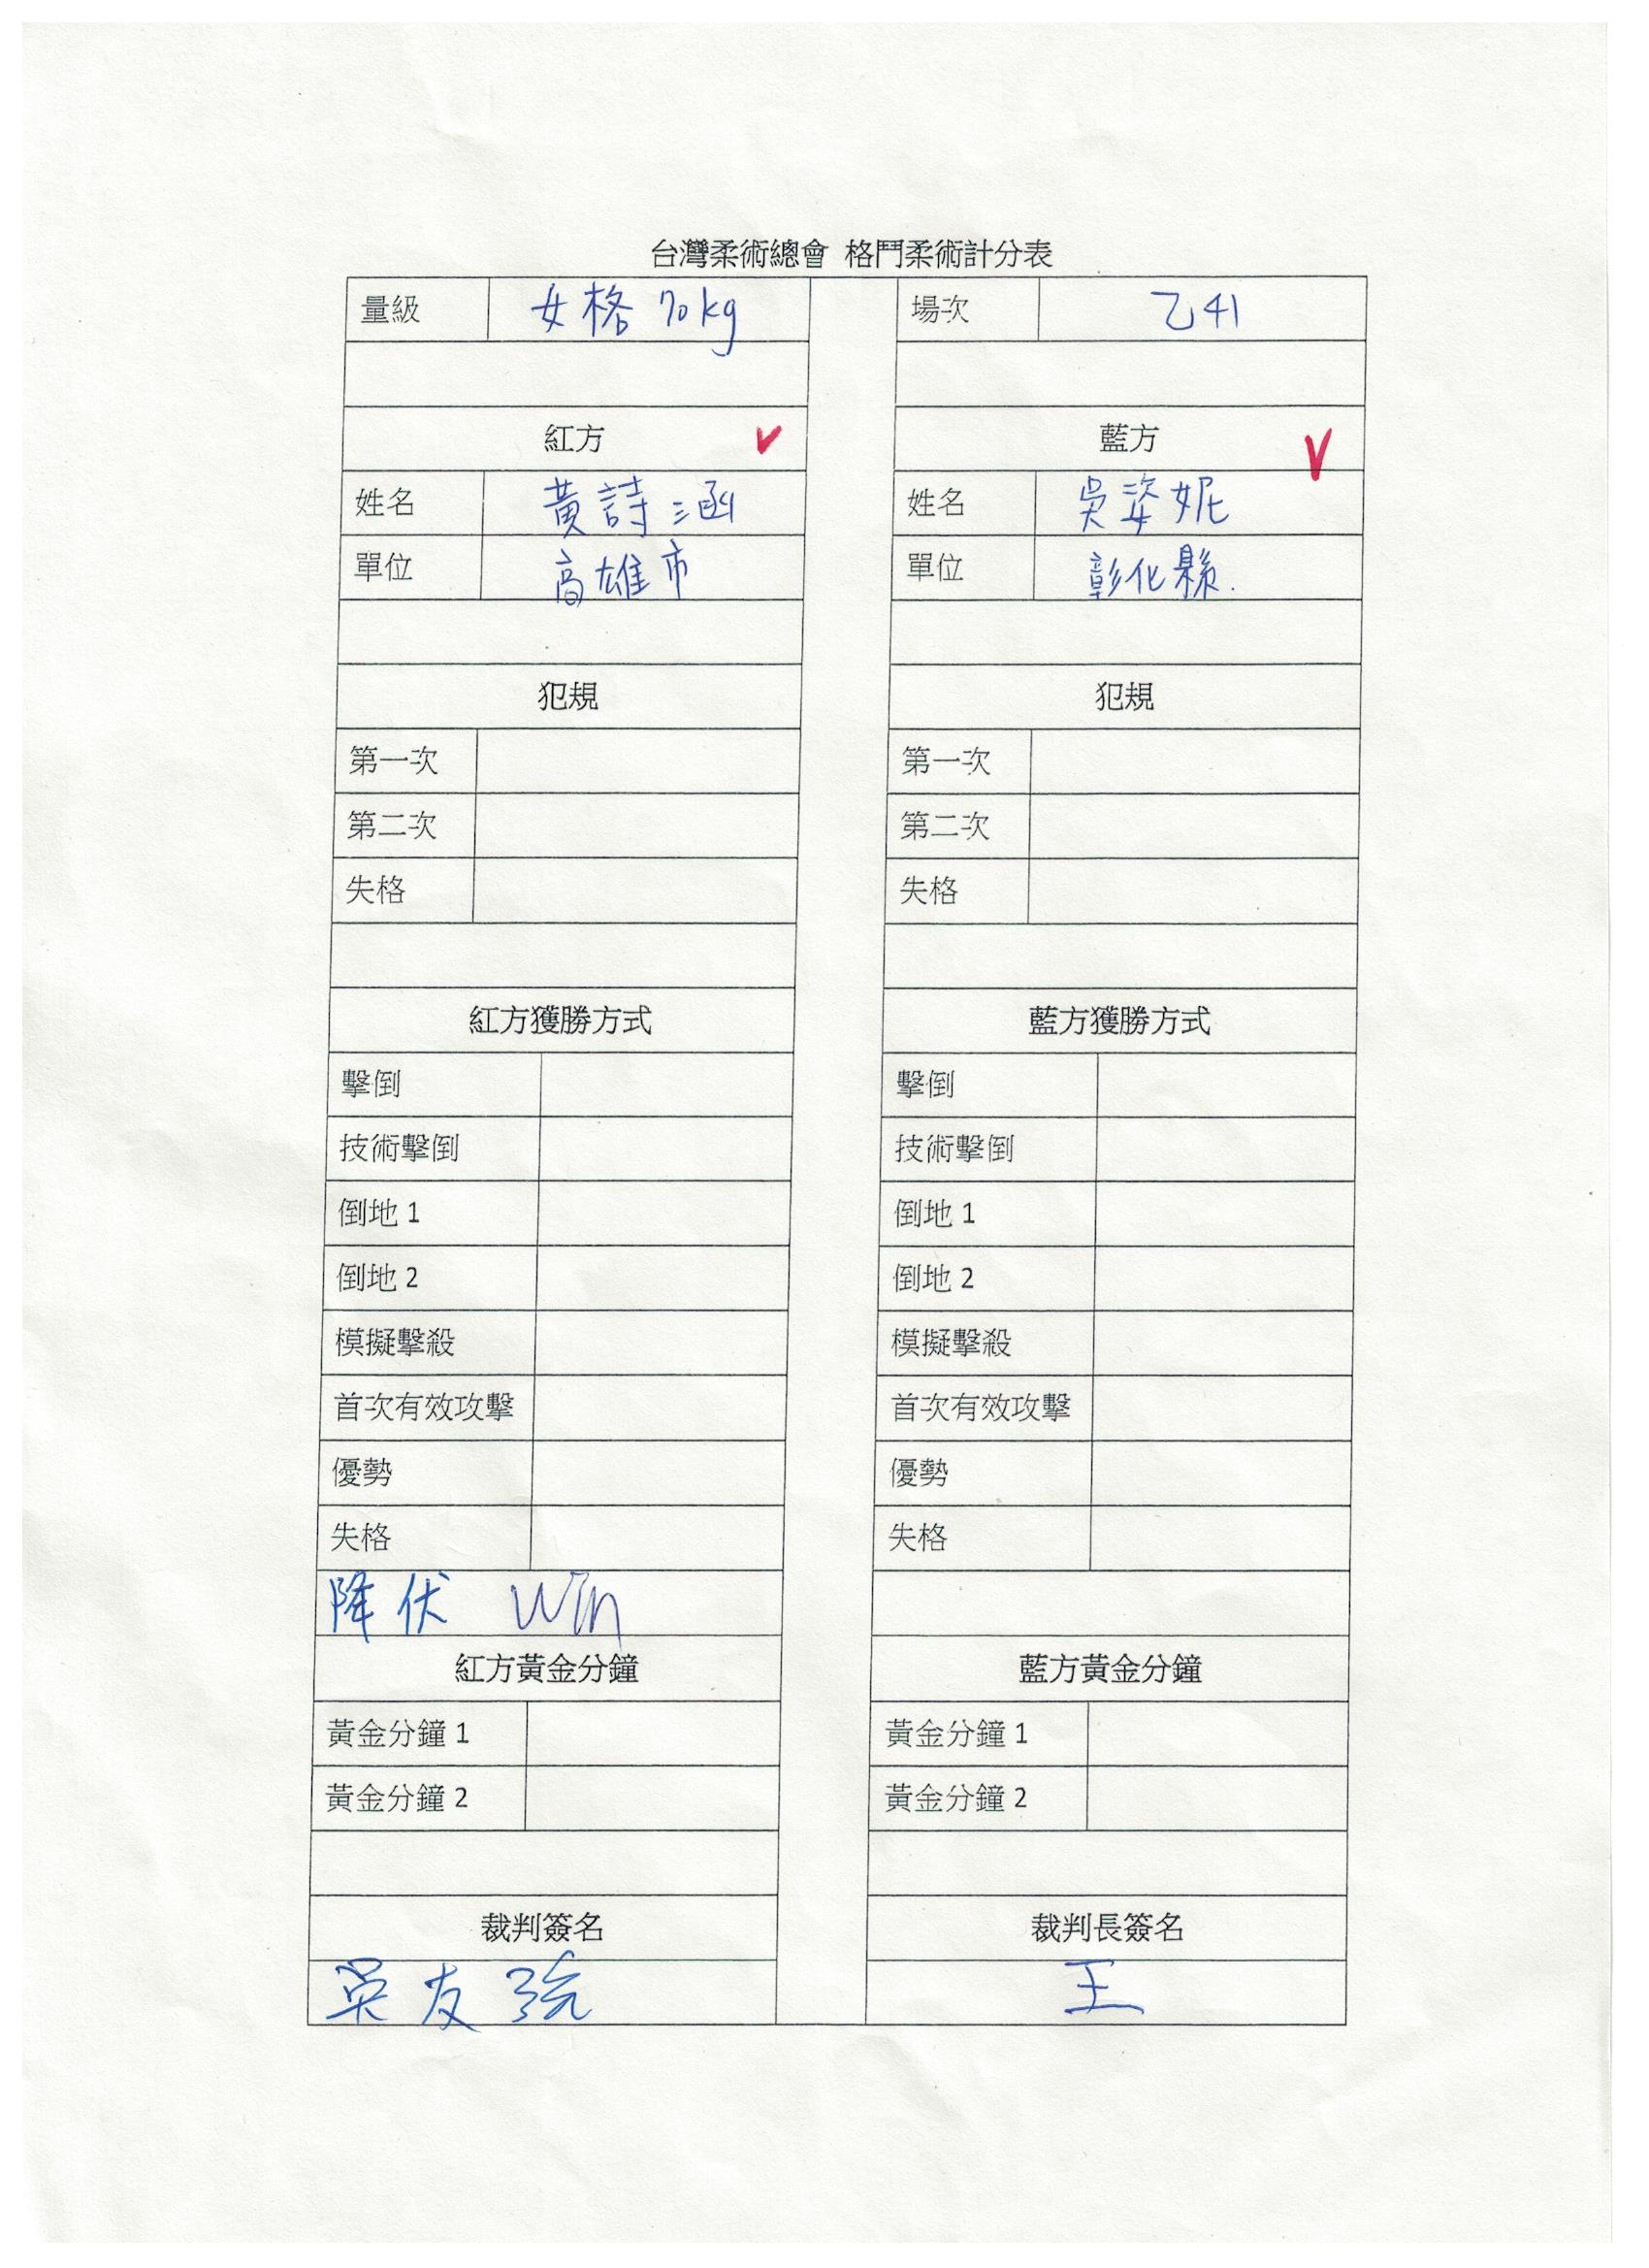 台灣柔術總會 格鬥柔術計分表
量級 女格 70kg 場次 乙41
紅方 藍方
姓名 黃詩涵 姓名 吳姿妮
單位 高雄市 單位 彰化縣.
犯規 犯規
第一次 第一次
第二次 第二次
失格 失格
紅方獲勝方式 藍方獲勝方式
擊倒 擊倒
技術擊倒 技術擊倒
倒地 1 倒地 1
倒地 2 倒地 2
模擬擊殺 模擬擊殺
首次有效攻擊 首次有效攻擊
優勢 優勢
失格 失格
降伏 Win
紅方黃金分鐘 藍方黃金分鐘
黃金分鐘 1 黃金分鐘 1
黃金分鐘 2 黃金分鐘 2
裁判簽名 裁判長簽名
吳友 王